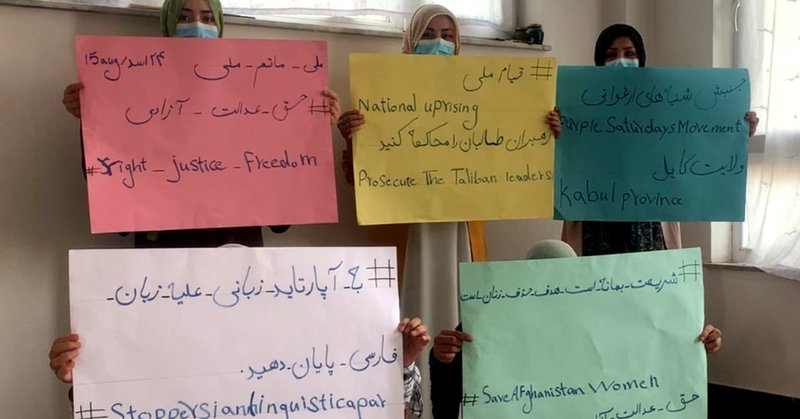 ملی - ماتم - ملی 24 اسد/15aug
#حق - عدالت - آزادی
#right - justice - Freedom
#قیام ملی
National uprising
رهبران طالبان را محاکمه کنید
Prosecute The Taliban leaders
جنبش شنبه‌های ارغوانی
Purple Saturdays Movement
ولایت کابل
Kabul province
#به - آپارتاید - زبانی - علیه - زبان -
فارسی - پایان - دهید.
#Stoppersianlinguisticapar
#شریعت - بهانه - است - هدف - حذف - زنان - است
#SaveAfghanistanWomen
حق - عدالت -